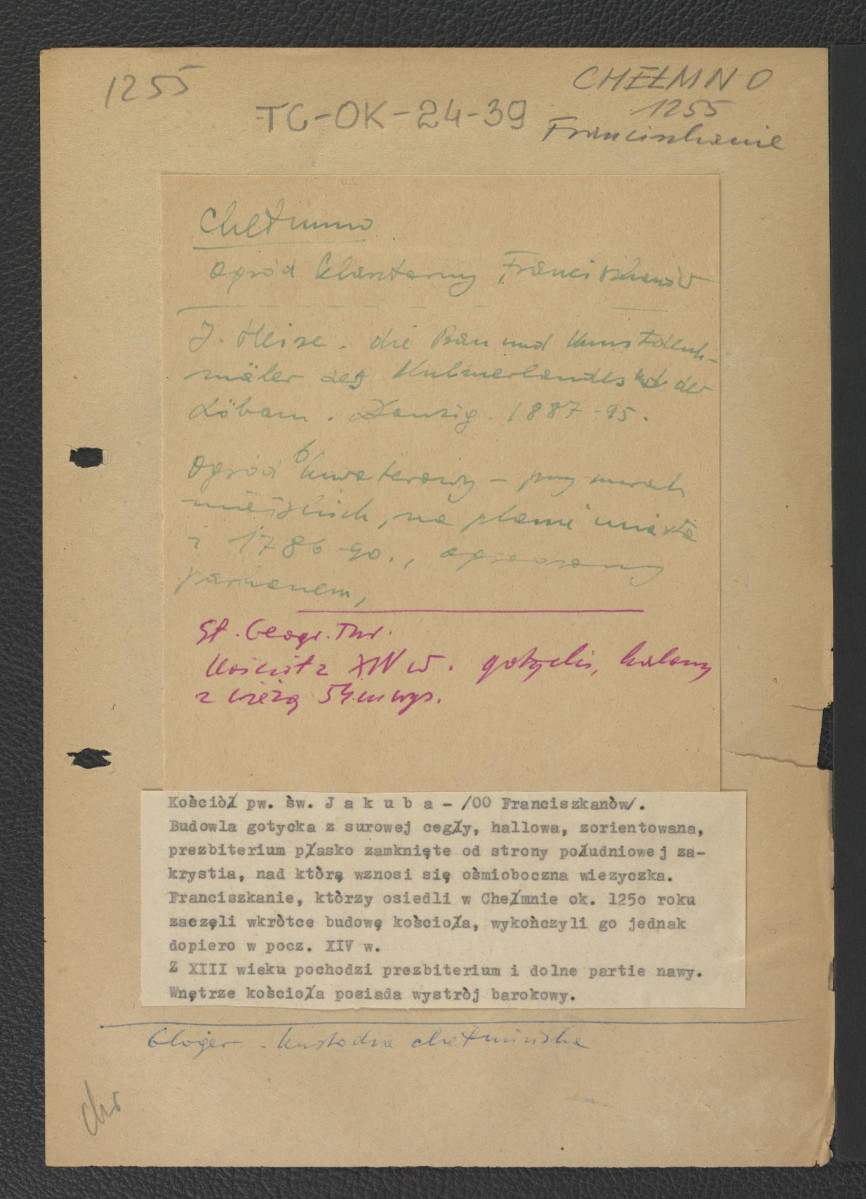 1255
CHEŁMNO
1255
TC-OK-24-39
Franciszkanie
Chełmno
Ogród klasztorny Franciszkanów
J. Heise. die Bau und Kunstdenk-
mäler des Kulmerlandes der
Löbau. Danzig. 1887-95.
Ogród kwaterowy - przy murach
miejskich, na planie miasta
z 1786-90., ogrodzony
parkanem,
Sł. Geogr.
Kościół z XIV w. gotycki,
z wieżą 54 m wys.
Kościół pw. św. J a k u b a - /OO Franciszkanów/.
Budowla gotycka z surowej cegły, hallowa, zorientowana,
prezbiterium płasko zamknięte od strony południowej za-
krystia, nad którą wznosi się ośmioboczna wiezyczka.
Franciszkanie, którzy osiedli w Chełmnie ok. 125o roku
zaczęli wkrótce budowę kościoła, wykończyli go jednak
dopiero w pocz. XIV w.
Z XIII wieku pochodzi prezbiterium i dolne partie nawy.
Wnętrze kościoła posiada wystrój barokowy.
Gloger - kustodia chełmińska